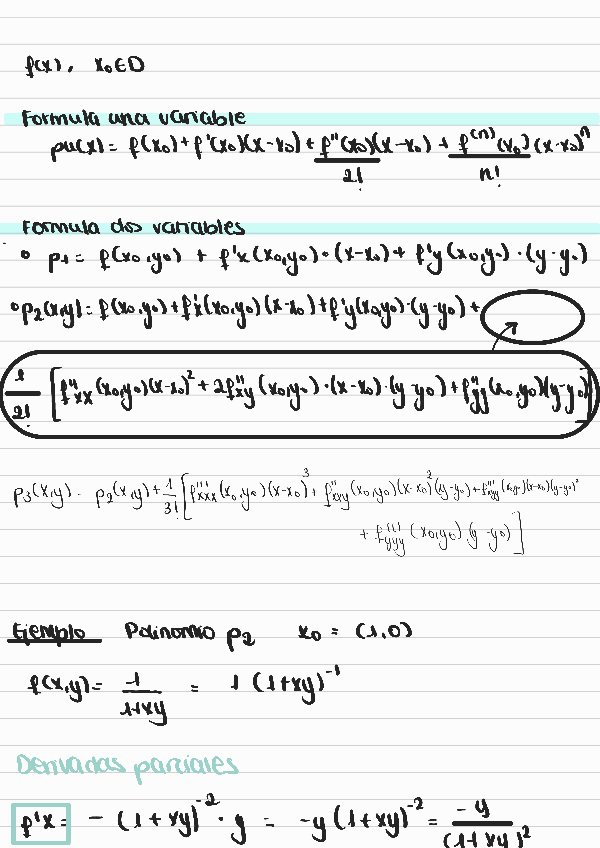 f(x), x₀∈D
Formula una variable
pn(x) = f(x₀) + f'(x₀)(x-x₀) + f''(x₀)(x-x₀)/2! + f⁽ⁿ⁾(x₀)/n! (x-x₀)ⁿ
Formula dos variables
• p₁ = f(x₀,y₀) + f'x(x₀,y₀)·(x-x₀) + f'y(x₀,y₀)·(y-y₀)
• p₂(x,y) = f(x₀,y₀) + f'x(x₀,y₀)(x-x₀) + f'y(x₀,y₀)·(y-y₀) +
1/2! [f''xx(x₀,y₀)(x-x₀)² + 2f''xy(x₀,y₀)·(x-x₀)·(y-y₀) + f''yy(x₀,y₀)(y-y₀)]
p₃(x,y) = p₂(x,y) + 1/3! [f'''xxx(x₀,y₀)(x-x₀)³ + f'''xxy(x₀,y₀)(x-x₀)²(y-y₀) + f'''xyy(x₀,y₀)(x-x₀)(y-y₀)²
+ f'''yyy(x₀,y₀)(y-y₀)]
Ejemplo Polinomio p₂ x₀ = (1,0)
f(x,y) = 1/(1+xy) = 1(1+xy)⁻¹
Derivadas parciales
f'x = -(1+xy)⁻²·y = -y(1+xy)⁻² = -y/(1+xy)²